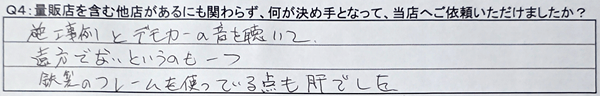 Q4：量販店を含む他店があるにも関わらず、何が決め手となって、当店へご依頼いただけましたか？
施工事例とデモカーの音を聴いて
遠方でないというのも一つ
鉄製のフレームを使っている点も肝でした